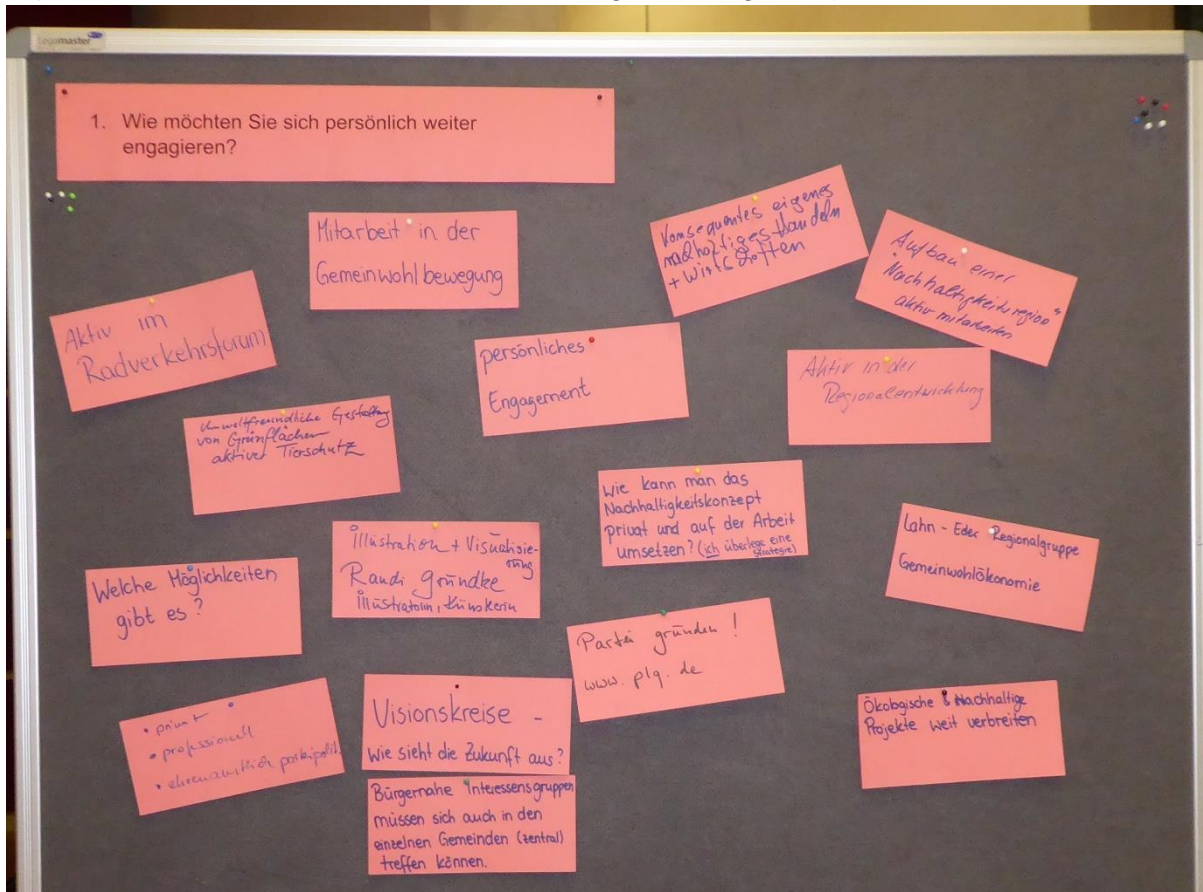 Legamaster
1. Wie möchten Sie sich persönlich weiter
engagieren?
Mitarbeit in der
Gemeinwohlbewegung
Konsequentes eigenes
nachhaltiges Handeln
+ Wirtschaften
Aufbau einer
"Nachhaltigkeitsregion"
aktiv mitarbeiten
Aktiv im
Radverkehrsforum
persönliches
Engagement
Aktiv in der
Regionalentwicklung
Umweltfreundliche Gestaltung
von Grünflächen
aktiver Tierschutz
Wie kann man das
Nachhaltigkeitskonzept
privat und auf der Arbeit
umsetzen? (ich überlege eine
Strategie)
Lahn-Eder Regionalgruppe
Gemeinwohlökonomie
Illustration + Visualisie-
rung
Randi Grundke
Illustratorin, Künstlerin
Welche Möglichkeiten
gibt es?
Partei gründen!
www.plq.de
• privat
• professionell
• ehrenamtlich parteipolit.
Visionskreise -
Wie sieht die Zukunft aus?
Ökologische & Nachhaltige
Projekte weit verbreiten
Bürgernahe Interessensgruppen
müssen sich auch in den
einzelnen Gemeinden (zentral)
treffen können.